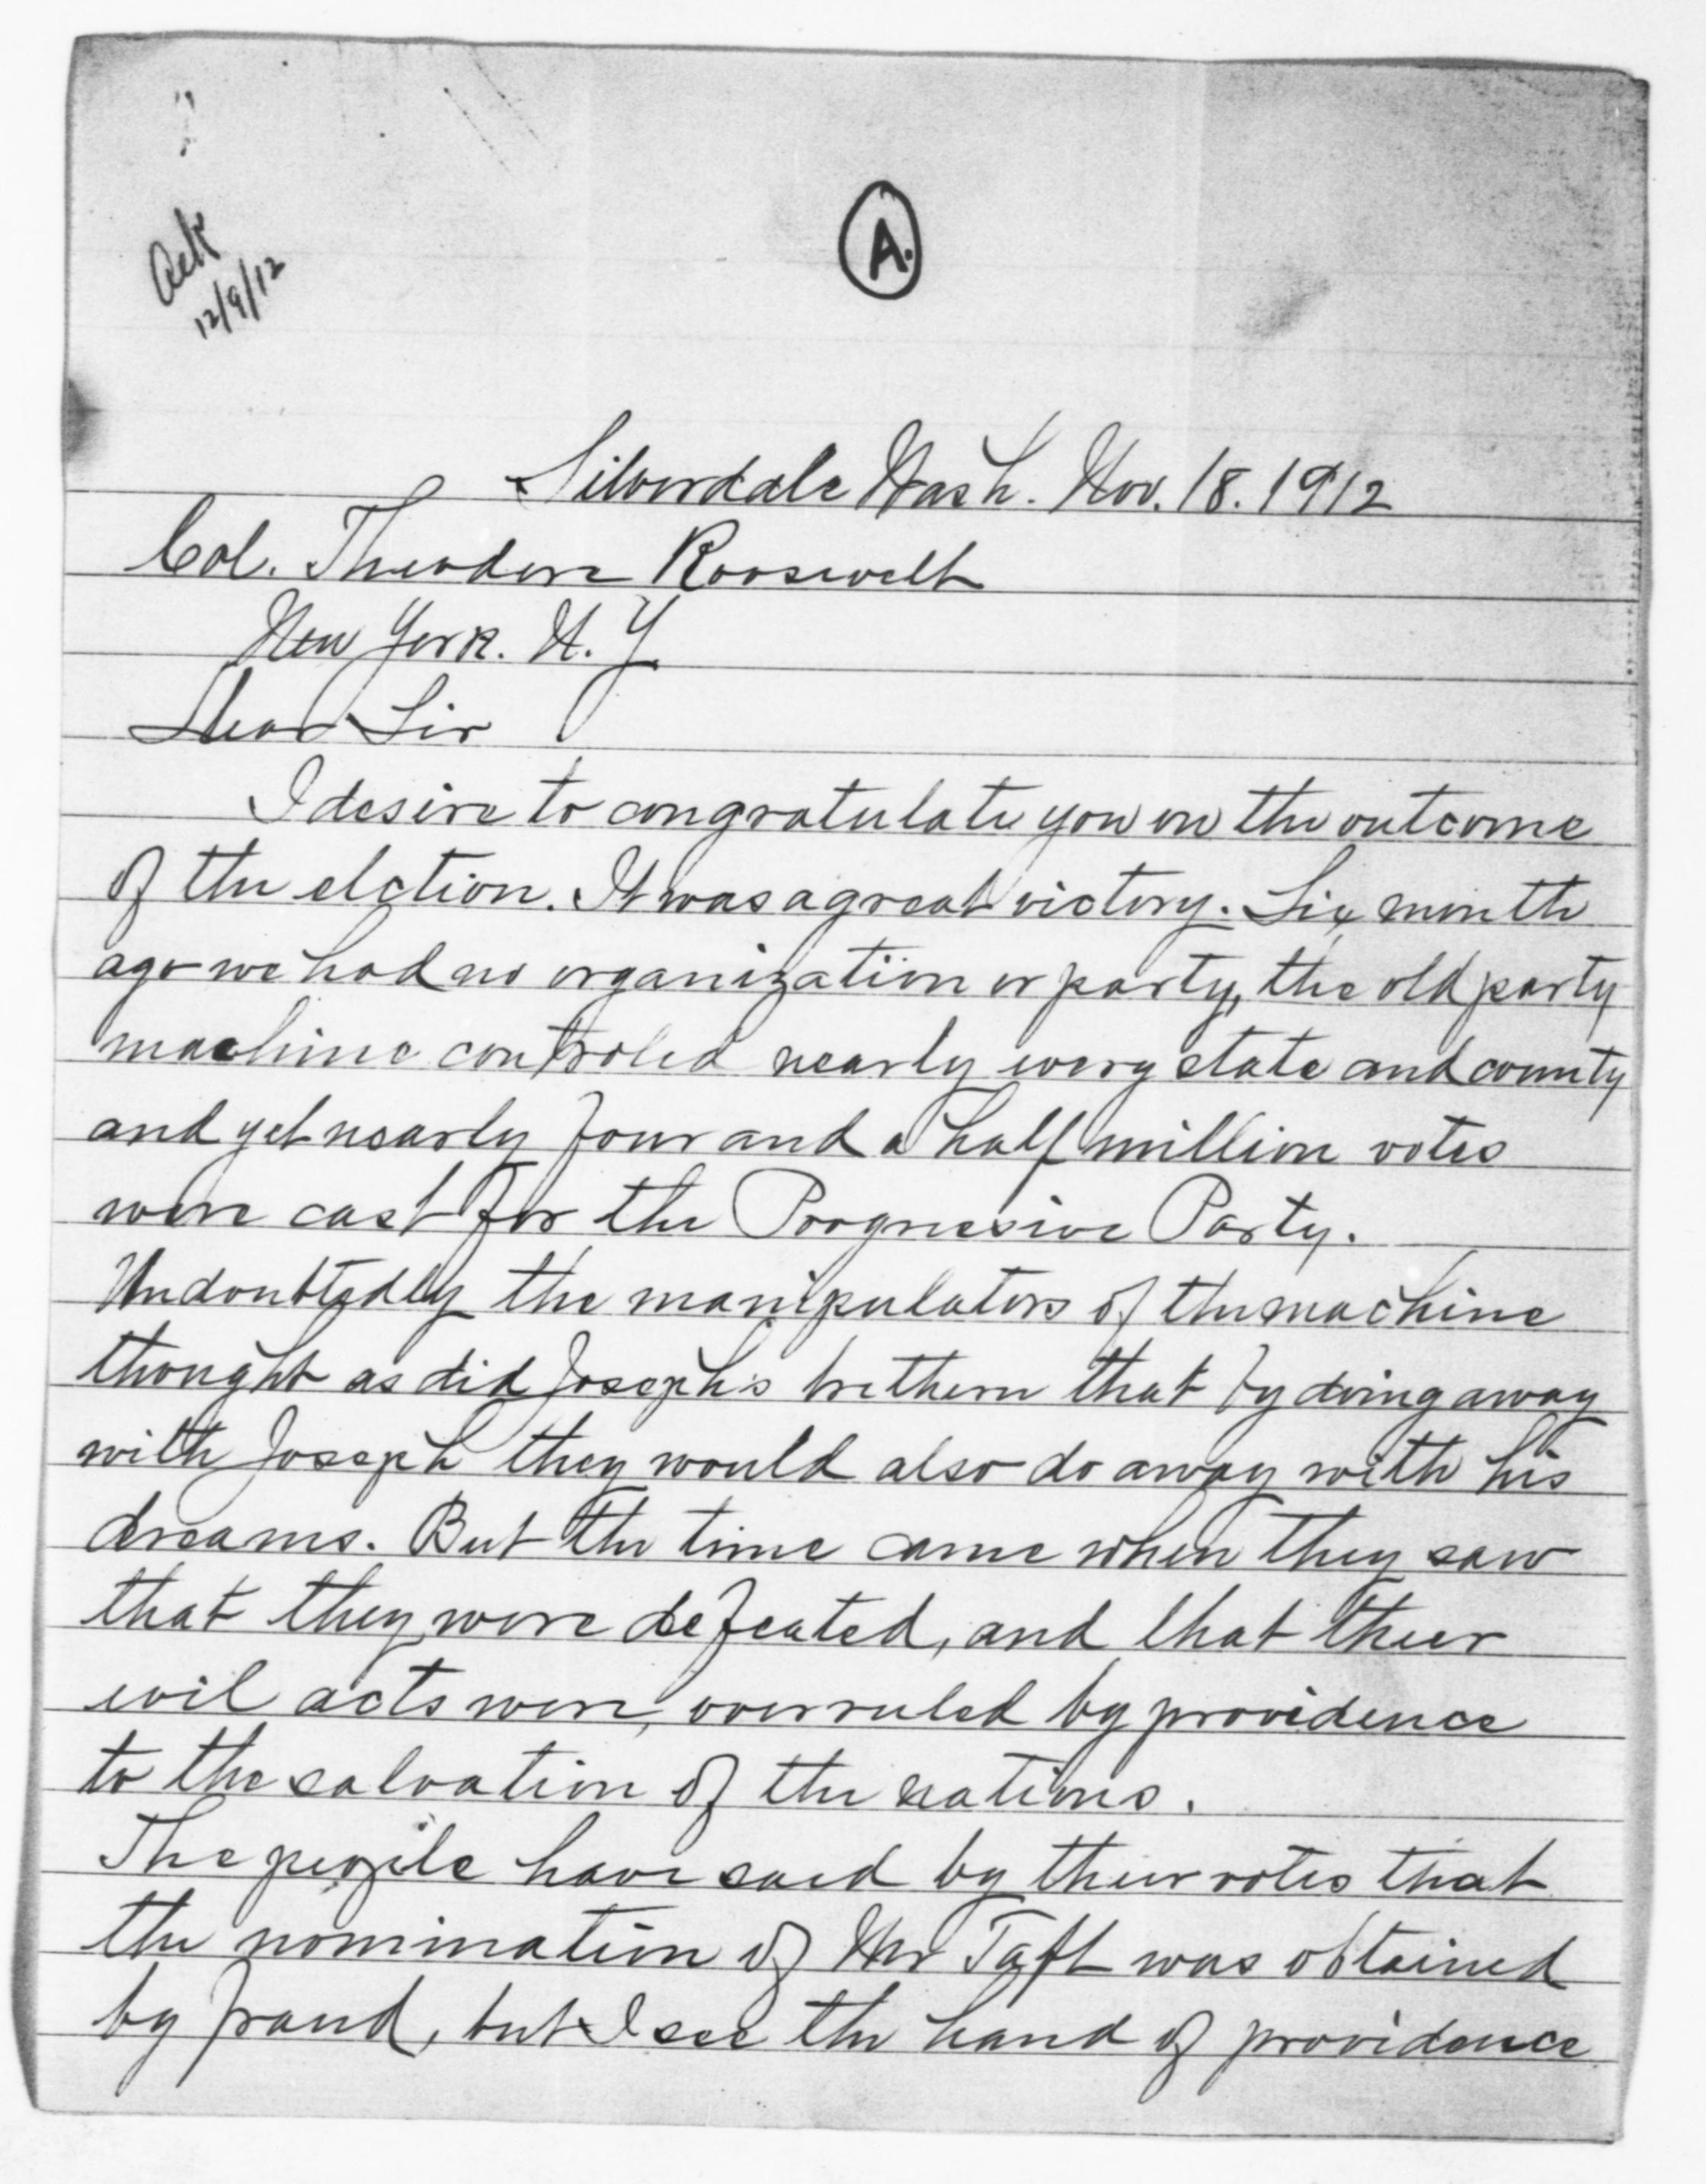 Ack
12/9/12
A.
Silverdale Wash. Nov. 18. 1912
Col. Theodore Roosevelt
New York. N. Y.
Dear Sir
I desire to congratulate you on the outcome
of the elction. It was a great victory. Six month
ago we had no organization or party, the old party
machine controled nearly every state and county
and yet nearly four and a half million votes
were cast for the Progresive Party.
Undoubtedly the manipulators of the machine
thought as did Joseph's brethern that by doing away
with Joseph they would also do away with his
dreams. But the time came when they saw
that they were defeated, and that their
evil acts were, overruled by providence
to the salvation of the nations.
The people have said by their votes that
the nomination of Mr Taft was obtained
by fraud, but I see the hand of providence